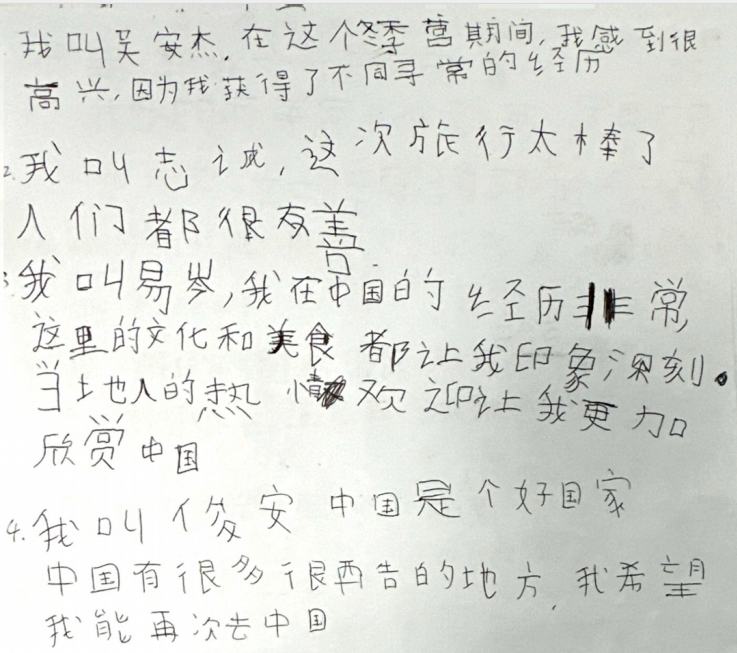 我叫吴安杰,在这个冬季营期间,我感到很
高兴,因为我获得了不同寻常的经历
2.我叫志诚,这次旅行太棒了
人们都很友善
3.我叫易岑,我在中国的经历非常,
这里的文化和美食都让我印象深刻。
当地人的热情欢迎让我更加
欣赏中国
4.我叫俊安 中国是个好国家
中国有很多很西告的地方,我希望
我能再次去中国